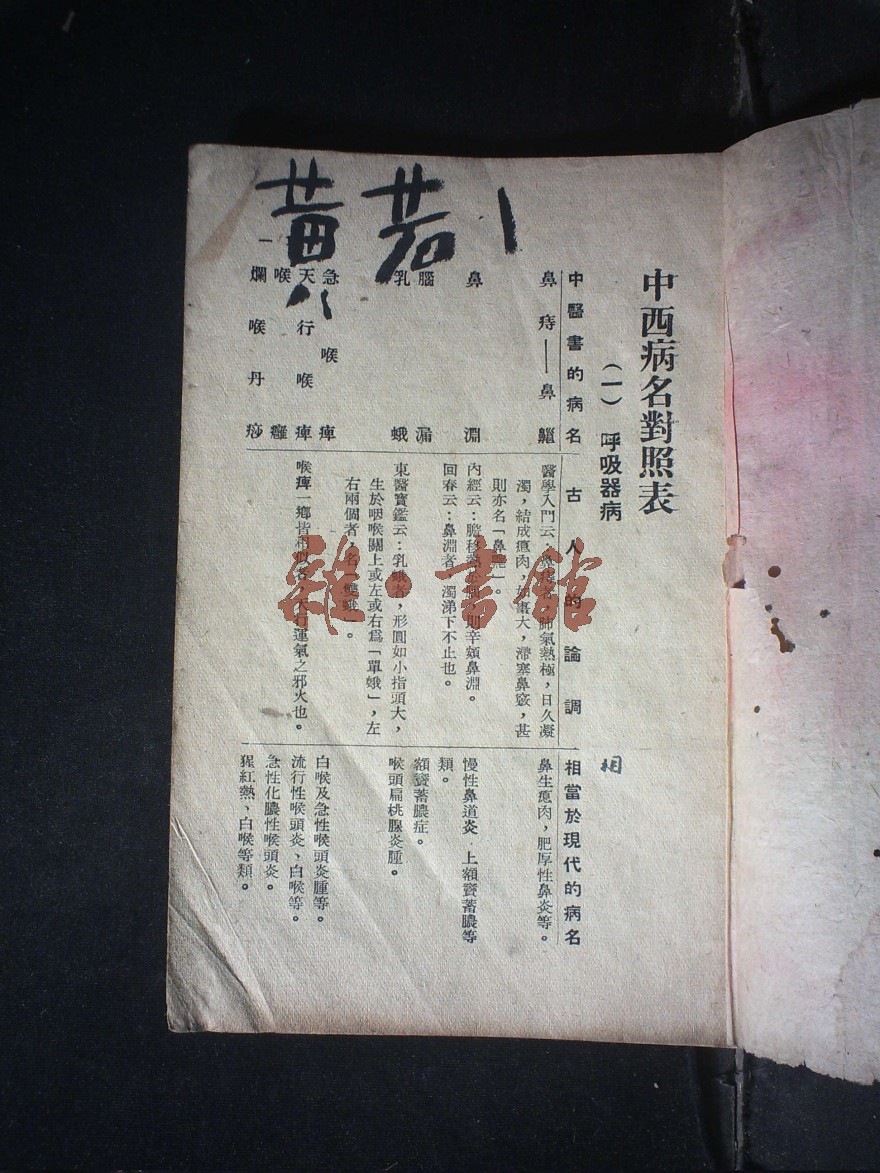 中西病名對照表
(一) 呼吸器病
中醫書的病名 古人的論調 相當於現代的病名
鼻痔——鼻齆
醫學入門云:鼻痔者,肺氣熱極,日久凝
濁,結成瘜肉,如棗大,滯塞鼻竅,甚
則亦名「鼻齆」。
鼻生瘜肉,肥厚性鼻炎等。
鼻淵
內經云:膽移熱於腦,則辛頞鼻淵。
回春云:鼻淵者,濁涕下不止也。
慢性鼻道炎 上額竇蓄膿等
類。
腦漏
額竇蓄膿症。
乳蛾
東醫寶鑑云:乳蛾者,形圓如小指頭大,
生於咽喉關上或左或右爲「單蛾」,左
右兩個者,名「雙蛾」。
喉頭扁桃腺炎腫。
急喉痺
白喉及急性喉頭炎腫等。
天行喉痺
喉痺一鄉皆相似者,天行運氣之邪火也。
流行性喉頭炎、白喉等。
喉癰
急性化膿性喉頭炎。
爛喉丹痧
猩紅熱、白喉等類。
一
黃若
相
雜·書館